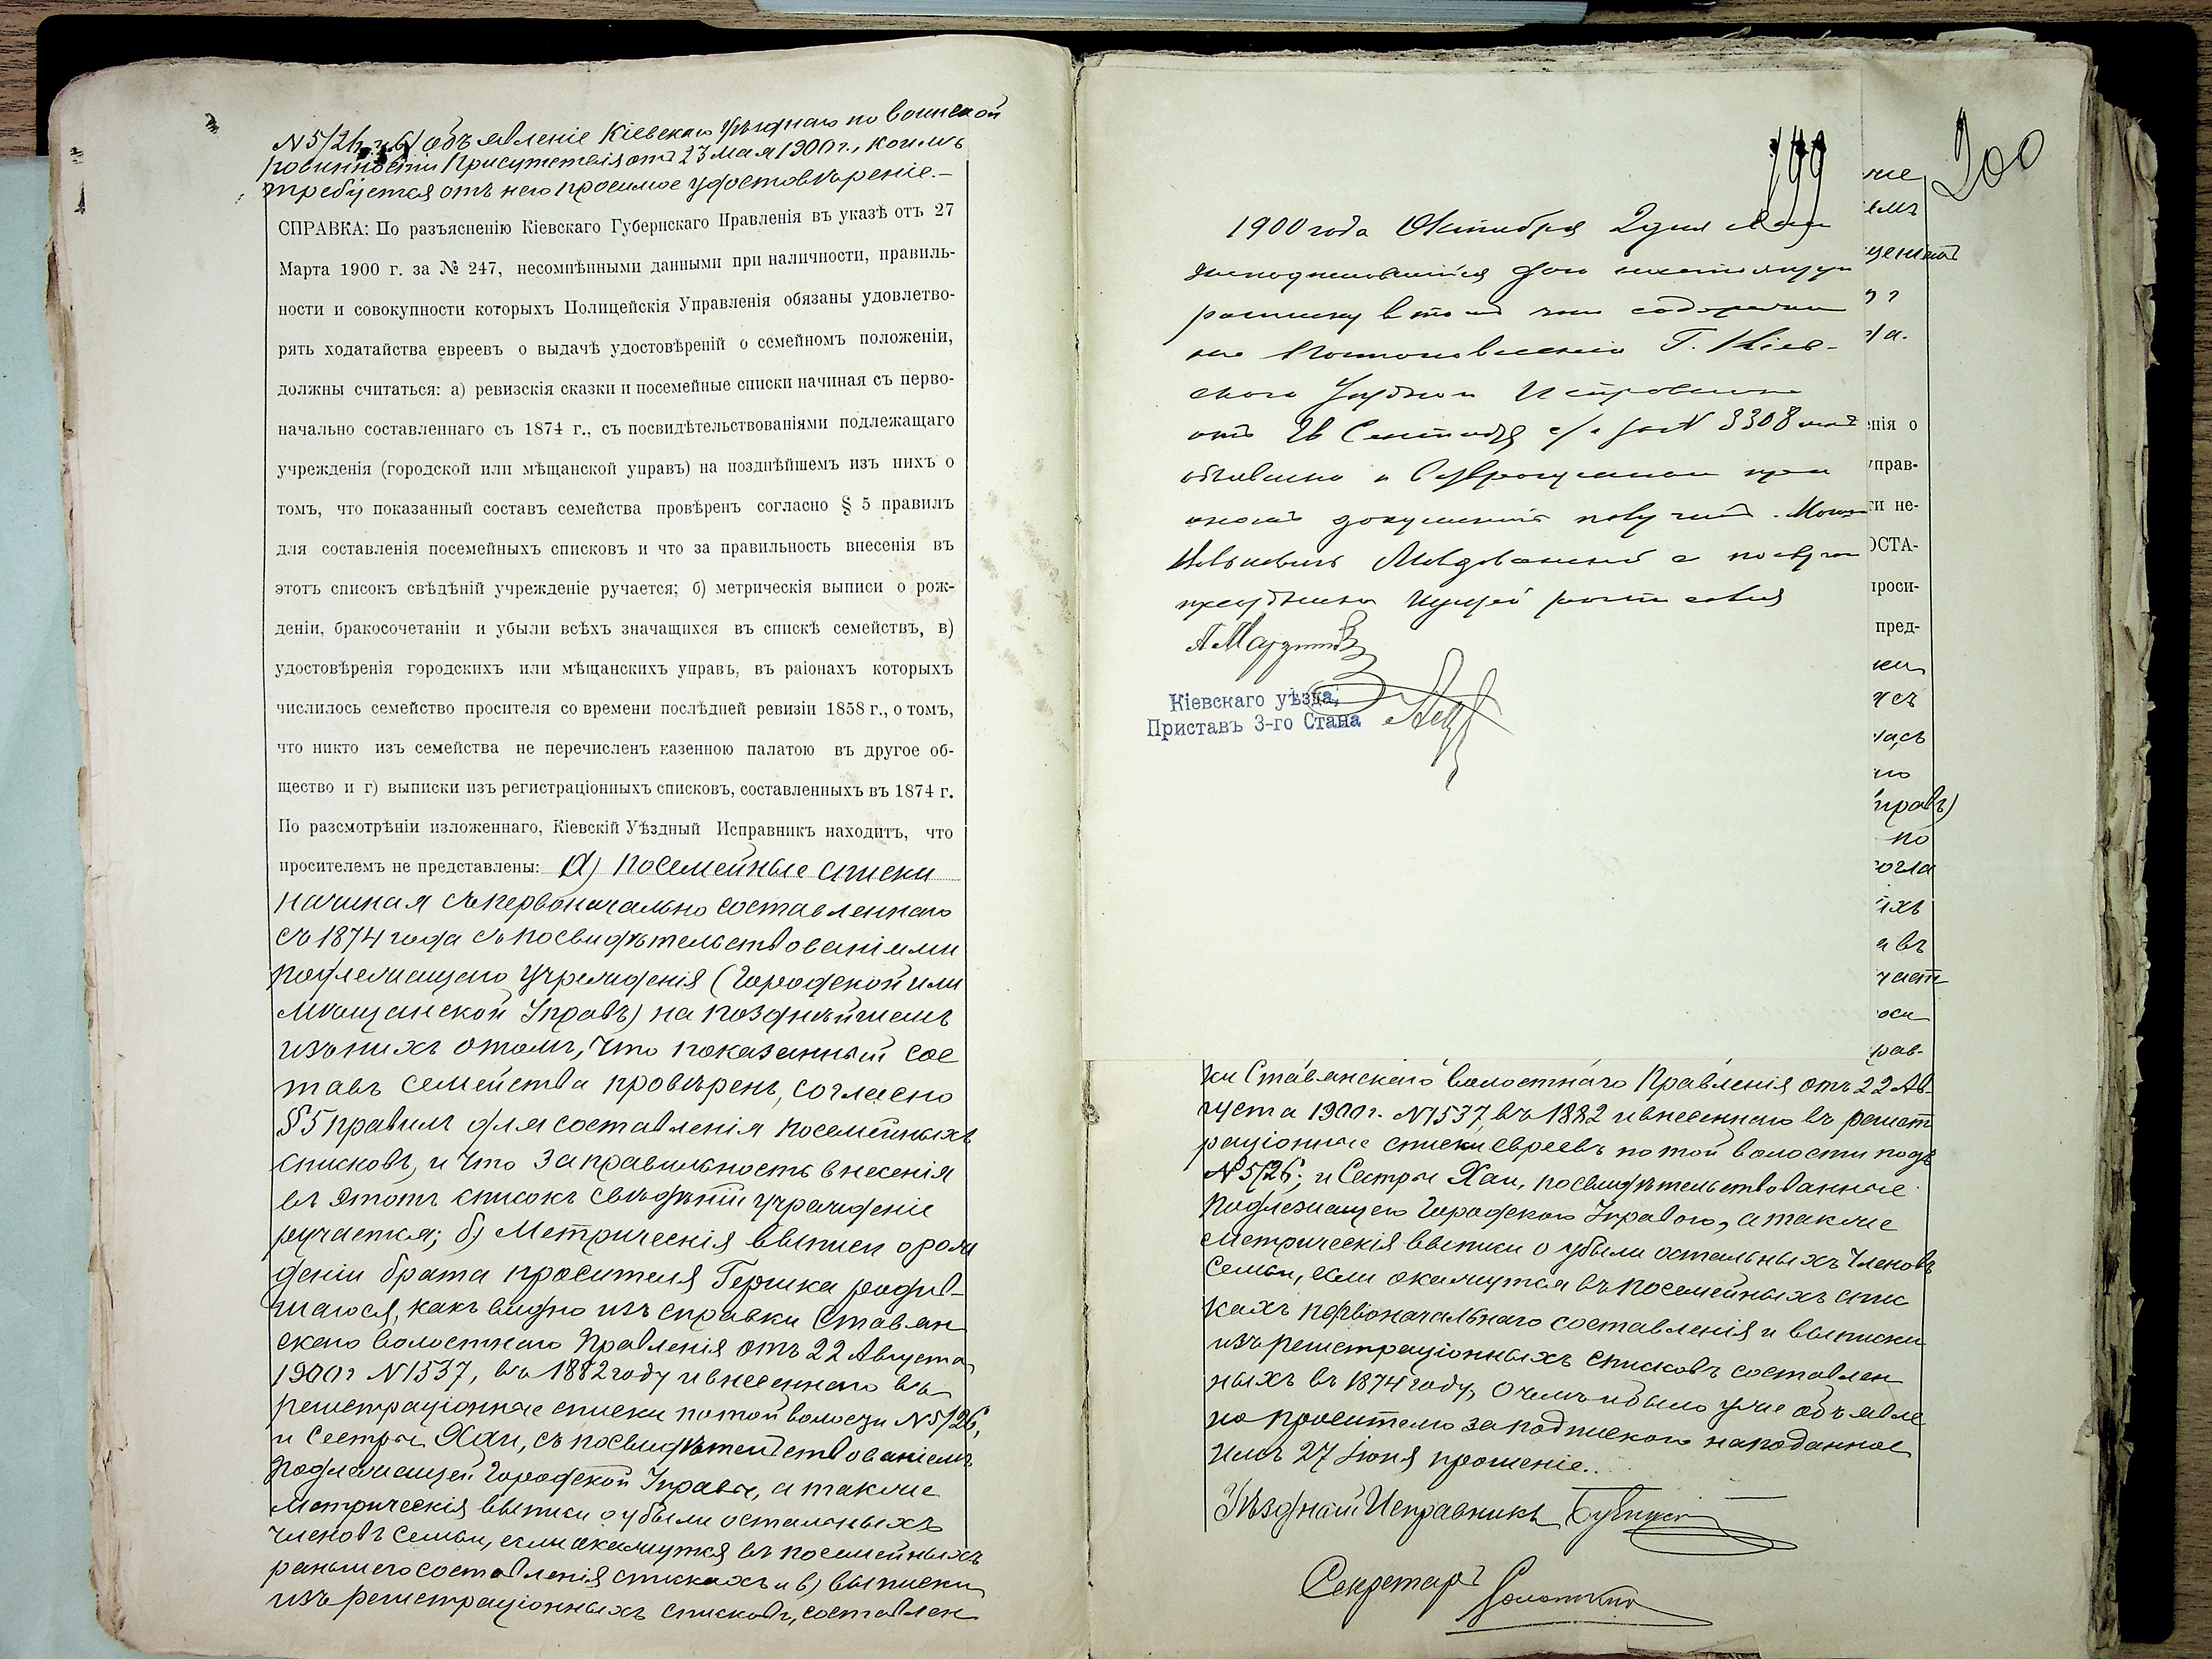 N 5/26 и б) объявленіе Кіевскаго Уѣзднаго по воинской
повинности Присутствія отъ 23 Мая 1900 г., коимъ
требуется отъ него просимое удостовѣреніе.-
СПРАВКА: По разъясненію Кіевскаго Губернскаго Правленія въ указѣ отъ 27
Марта 1900 г. за № 247, несомнѣнными данными при наличности, правиль-
ности и совокупности которыхъ Полицейскія Управленія обязаны удовлетво-
рять ходатайства евреевъ о выдачѣ удостовѣреній о семейномъ положеніи,
должны считаться: а) ревизскія сказки и посемейные списки начиная съ перво-
начально составленнаго съ 1874 г., съ посвидѣтельствованіями подлежащаго
учрежденія (городской или мѣщанской управъ) на позднѣйшемъ изъ нихъ о
томъ, что показанный составъ семейства провѣренъ согласно § 5 правилъ
для составленія посемейныхъ списковъ и что за правильность внесенія въ
этотъ список свѣдѣній учрежденіе ручается; б) метрическія выписи о рож-
деніи, бракосочетаніи и убыли всѣхъ значащихся въ спискѣ семействъ, в)
удостовѣренія городскихъ или мѣщанскихъ управъ, въ раіонахъ которыхъ
числилось семейство просителя со времени послѣдней ревизіи 1858 г., о томъ,
что никто изъ семейства не перечисленъ казенною палатою въ другое об-
щество и г) выписки изъ регистраціонныхъ списковъ, составленныхъ въ 1874 г.
По разсмотрѣніи изложеннаго, Кіевскій Уѣздный Исправникъ находитъ, что
просителемъ не представлены: а) посемейные списки
начиная съ первоначально составленнаго
съ 1874 года съ посвидѣтельствованіями
подлежащаго учрежденія (Городской или
Мѣщанской Управъ) на позднѣйшемъ
изъ нихъ о томъ, что показанный сос
тавъ семейства провѣренъ, согласно
§ 5 правилъ для составленія посемейныхъ
списковъ, и что за правильность внесенія
въ этотъ списокъ свѣдѣній учрежденіе
ручается; б) Метрическія выписи о рож
деніи брата просителя Гершка родив-
шагося, какъ видно изъ справки Ставян
скаго волостнаго Правленія отъ 22 Августа
1900 г N 1537, въ 1882 году и внесеннаго въ
регистраціонные списки по той волости N 5/26,
и Сестры Хаи, съ посвидѣтельствованіемъ
подлежащей Городской Управы, а также
метрическія выписи о убыли остальныхъ
членовъ семьи, если окажутся въ посемейныхъ
раньшего составленія спискахъ и в) выписки
изъ регистраціонныхъ списковъ, составлен
199
1900 года Октября 2 дня я
нижеподписавшійся даю
росписку в том что содержа
ніе Постановленія Г. Кіев-
скаго Уѣзднаго Исправника
отъ 26 Сентября с/г за N 3308 мнѣ
объявлено и
документы получилъ.
А Мартин
Кіевскаго уѣзда,
Приставъ 3-го Стана
200
енія о
управ-
ти не-
ОСТА-
проси-
пред-
ки Ставянскаго волостнаго Правленія отъ 22 Ав-
густа 1900 г. N 1537, въ 1882 и внесеннаго въ регист
раціонные списки евреевъ по той волости подъ
N 5/26; и Сестры Хаи, посвидѣтельствованные
подлежащею Городскою Управою, а также
метрическія выписи о убыли остальныхъ членовъ
семьи, если окажутся въ посемейныхъ спис
кахъ первоначальнаго составленія и выписки
изъ регистраціонныхъ списковъ составлен
ныхъ въ 1874 году, о чемъ и было уже объявле
но просителю за подпискою на поданное
имъ 27 Іюня прошеніе.
Уѣздный Исправникъ
Секретарь